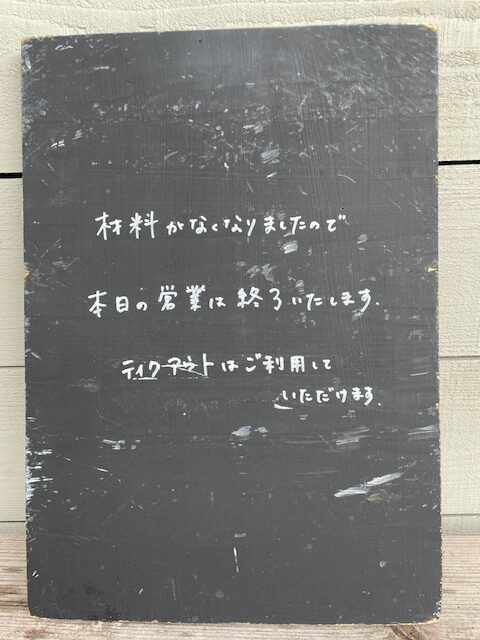 材料がなくなりましたので
本日の営業は終了いたします.
ティクアウトはご利用して
いただけます.